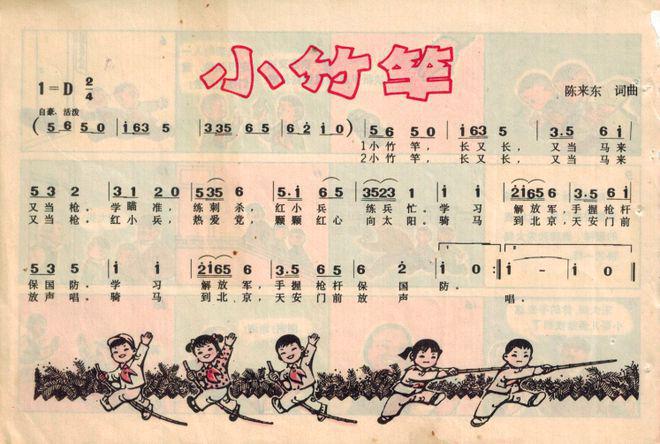 小竹竿
1=D 2/4
陈来东 词曲
自豪、活泼
(5 6 5 0 | i 6 3 5 | 3 3 5 6 5 | 6 2 i 0) | 5 6 5 0 | i 6 3 5 | 3. 5 6 i |
1小竹竿，长又长，又当马来
2小竹竿，长又长，又当马来
5 3 2 | 3 1 2 0 | 5 3 5 6 | 5. i 6 5 | 3 5 2 3 1 | i i | 2 i 6 5 6 | 3. 5 6 i |
又当枪。学瞄准，练刺杀，红小兵 练兵忙。学习 解放军，手握枪杆
又当枪。红小兵，热爱党，颗颗红心 向太阳。骑马 到北京，天安门前
5 3 5 | i i | 2 i 6 5 6 | 3. 5 6 i | 6 2 | i 0 :| i - | i 0 ||
1
2
保国防。学习 解放军，手握枪杆 保国防。
放声唱。骑马 到北京，天安门前 放声唱。